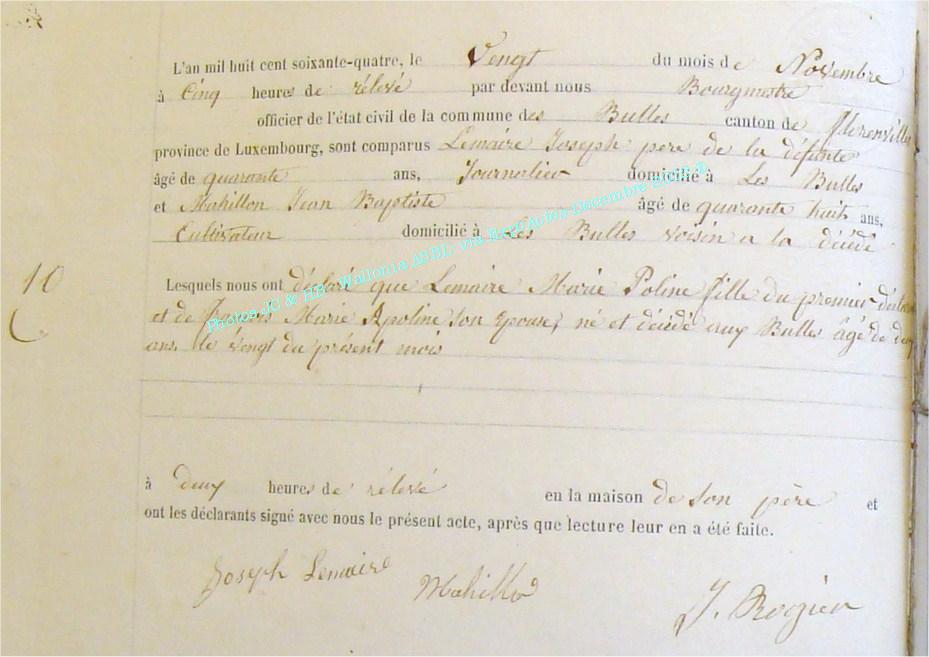 L'an mil huit cent soixante-quatre, le Vengt du mois de Novembre
à Cinq heures de rélevé par devant nous Bourgmestre
officier de l'état civil de la commune des Bulles canton de florenville
province de Luxembourg, sont comparus Lemaire Joseph pere de la défunte
âgé de quarante ans, Journalier domicilié à Les Bulles
et Mahillon Jean Baptiste âgé de quarante huit ans,
Cultivateur domicilié à Les Bulles voisin a la décédé
10
Lesquels nous ont déclaré que Lemaire Marie Poline fille du premier
et de Marie Apoline son Epouse, né et décédé aux Bulles âgé de
ans, le vengt du présent mois
à deux heures de rélevé en la maison de son père et
ont les déclarants signé avec nous le présent acte, après que lecture leur en a été faite.
Joseph Lemaire
Mahillon
J. Rogier
Photos JC & HB - Wallonia ASBL via Regi Aulea Decembre